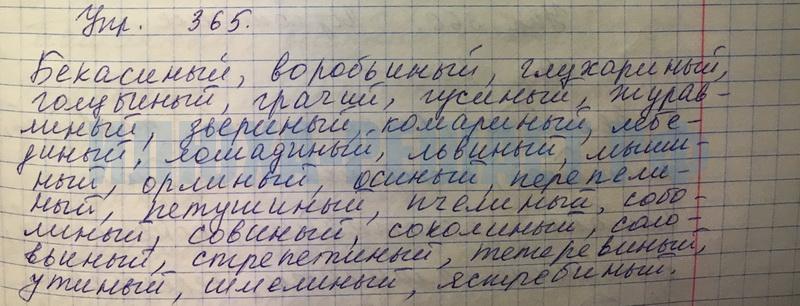 Упр. 365.
Бекасиный, воробьиный, глухариный,
голубиный, грачий, гусиный, журав-
линый, звериный, комариный, лебе-
диный, лошадиный, львиный, мыши-
ный, орлиный, осиный, перепели-
ный, петушиный, пчелиный, собо-
линый, совиный, соколиный, соло-
вьиный, стрепетиный, тетеревиный,
утиный, шмелиный, ястребиный.